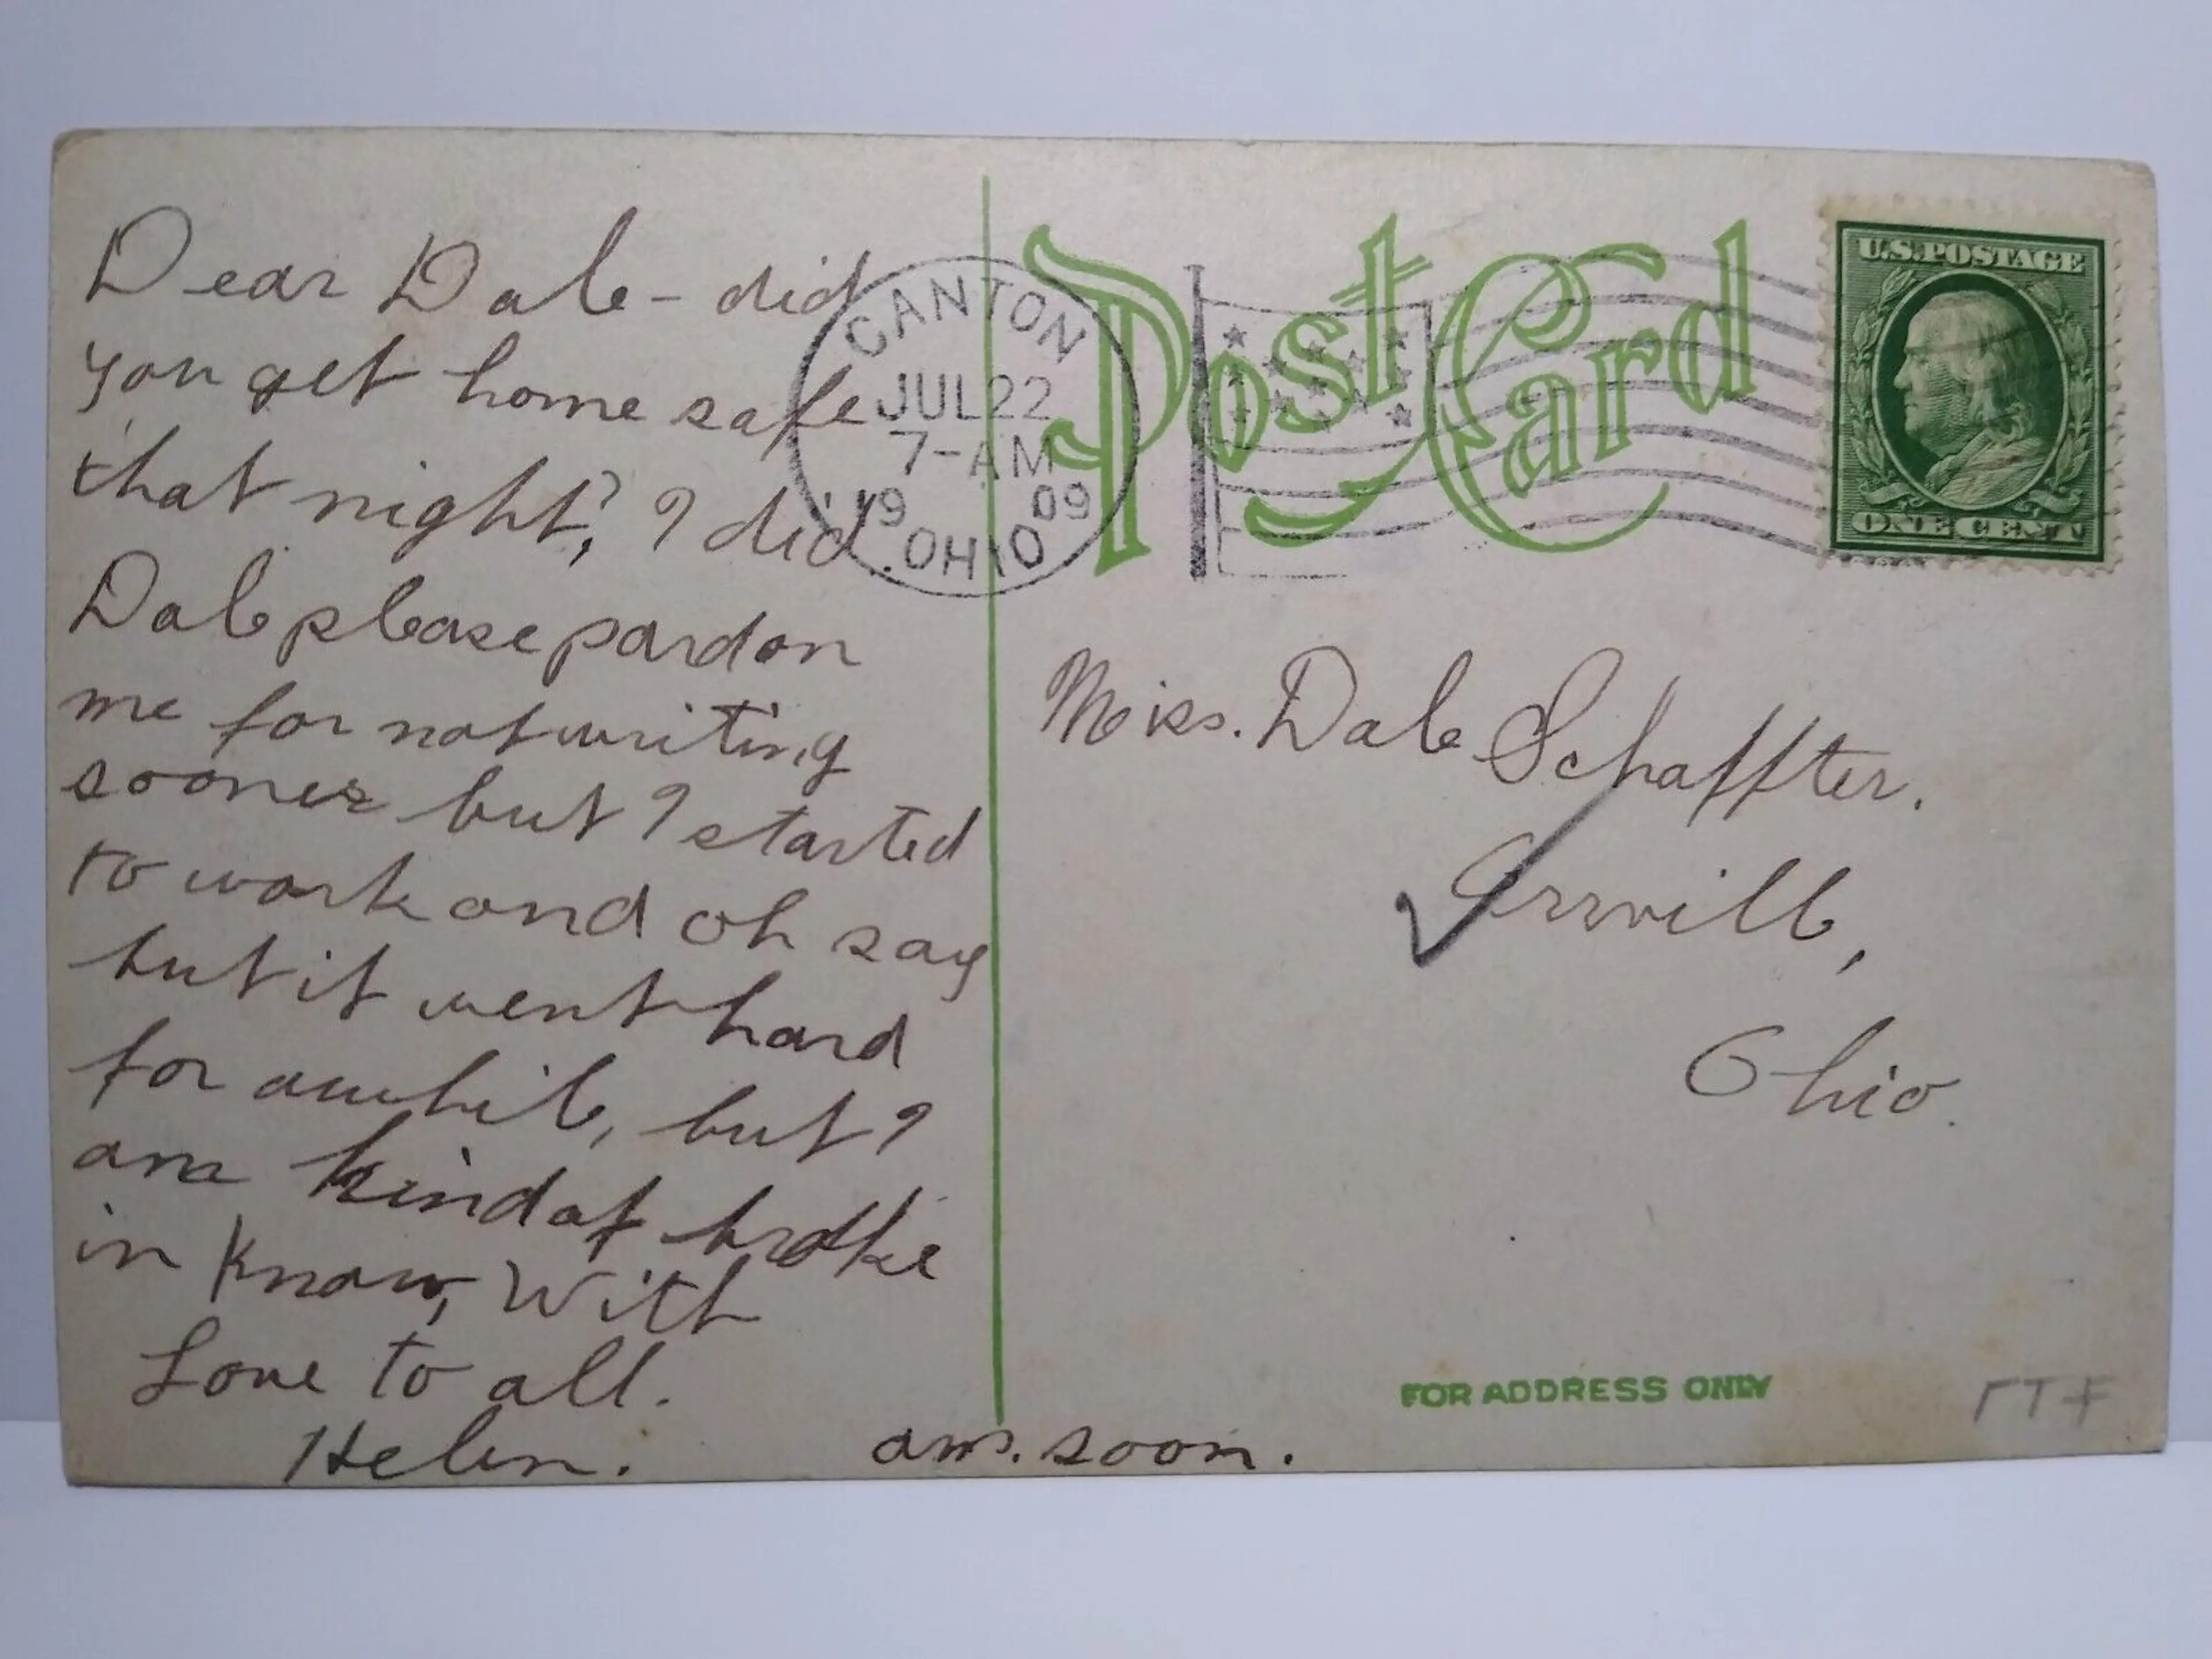 Dear Dale - did
you get home safe
that night? I did.
Dale please pardon
me for not writing
sooner but I started
to work and oh say
but it went hard
for awhile, but I
am kind of broke
in know, With
Love to all.
Helen.
ans. soon.
Post Card
CANTON
JUL 22
7-AM
19 09
OHIO
U.S. POSTAGE
ONE CENT
Miss. Dale Schaffter.
Orrville,
Ohio.
FOR ADDRESS ONLY